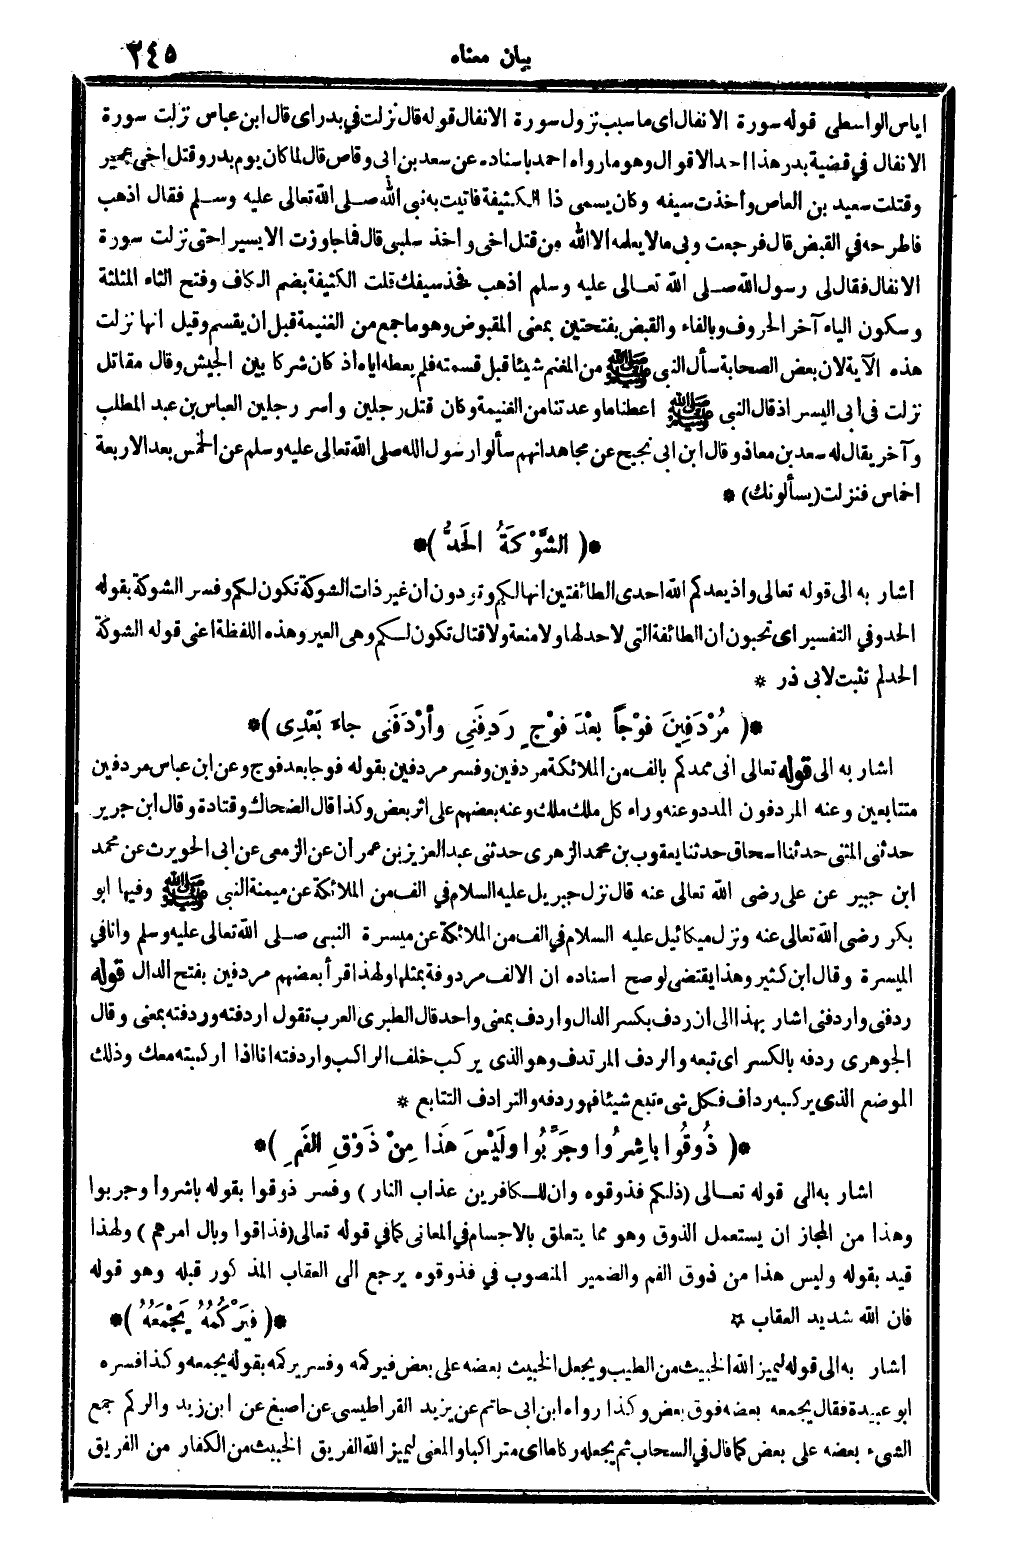 بيان معناه ٢٤٥
اياس الواسطى قوله سورة الانفال اى ما سبب نزول سورة الانفال قوله قال نزلت فى بدر اى قال ابن عباس نزلت سورة
الانفال في قضية بدر هذا احد الاقوال وهو ما رواه احمد باسناده عن سعد بن ابى وقاص قال لما كان يوم بدر وقتل اخى عمير
وقتلت سعيد بن العاص وأخذت سيفه وكان يسمى ذا الكثيفة فاتيت به نبى الله صلى الله تعالى عليه وسلم فقال اذهب
فاطرحه في القبض قال فرجعت وبى ما لا يعلمه الا الله من قتل اخى واخذ سلبى قال فما جاوزت الا يسيرا حتى نزلت سورة
الانفال فقال لى رسول الله صلى الله تعالى عليه وسلم اذهب فخذ سيفك قلت الكثيفة بضم الكاف وفتح الثاء المثلثة
وسكون الياء آخر الحروف وبالفاء والقبض بفتحتين بمعنى المقبوض وهو ما جمع من الغنيمة قبل ان يقسم وقيل انها نزلت
هذه الآية لان بعض الصحابة سأل النبى ﷺ من المغنم شيئا قبل قسمته فلم يعطه اياه اذ كان شركا بين الجيش وقال مقاتل
نزلت فى أبى اليسر اذ قال النبى ﷺ اعطنا ما وعدتنا من الغنيمة وكان قتل رجلين وأسر رجلين العباس بن عبد المطلب
وآخر يقال له سعد بن معاذ وقال ابن ابى نجيح عن مجاهد انهم سألوا رسول الله صلى الله تعالى عليه وسلم عن الخمس بعد الاربعة
اخماس فنزلت (يسألونك) *
*( الشَّوْكَةُ الحَدُّ )*
اشار به الى قوله تعالى واذ يعدكم الله احدى الطائفتين انها لكم وتودون ان غير ذات الشوكة تكون لكم وفسر الشوكة بقوله
الحد وفي التفسير اى تحبون ان الطائفة التى لا حد لها ولا منعة ولا قتال تكون لكم وهى العير وهذه اللفظة اعنى قوله الشوكة
الحد لم تثبت لابى ذر *
*( مُرْدَفِينَ فَوْجاً بعْدَ فوْجٍ رَدِفَنِي وأرْدَفَنى جاء بَعْدِى )*
اشار به الى قوله تعالى انى ممدكم بالف من الملائكة مردفين وفسر مردفين بقوله فوجا بعد فوج وعن ابن عباس مردفين
متتابعين وعنه المردفون المدد وعنه وراء كل ملك ملك وعنه بعضهم على اثر بعض وكذا قال الضحاك وقتادة وقال ابن جرير
حدثنى المثنى حدثنا اسحاق حدثنا يعقوب بن محمد الزهرى حدثنى عبد العزيز بن عمران عن الزمعى عن ابى الحويرث عن محمد
ابن جبير عن على رضى الله تعالى عنه قال نزل جبريل عليه السلام في الف من الملائكة عن ميمنة النبى ﷺ وفيها ابو
بكر رضى الله تعالى عنه ونزل ميكائيل عليه السلام في الف من الملائكة عن ميسرة النبى صلى الله تعالى عليه وسلم وانا في
الميسرة وقال ابن كثير وهذا يقتضى لو صح اسناده ان الالف مردوفة بمثلها ولهذا قرأ بعضهم مردفين بفتح الدال قوله
ردفنى واردفنى اشار بهذا الى ان ردف بكسر الدال واردف بمعنى واحد قال الطبرى العرب تقول اردفته وردفته بمعنى وقال
الجوهرى ردفه بالكسر اى تبعه والردف المرتدف وهو الذى يركب خلف الراكب واردفته انا اذا اركبته معك وذلك
الموضع الذى يركبه رداف فكل شىء تبع شيئا فهو ردفه والترادف التتابع *
*( ذُوقُوا باشِرُوا وجَرِّبُوا ولَيْسَ هَذا مِنْ ذَوْقِ الفَمِ )*
اشار به الى قوله تعالى (ذلكم فذوقوه وان للكافرين عذاب النار ) وفسر ذوقوا بقوله باشروا وجربوا
وهذا من المجاز ان يستعمل الذوق وهو مما يتعلق بالاجسام في المعانى كما في قوله تعالى (فذاقوا وبال امرهم ) ولهذا
قيد بقوله وليس هذا من ذوق الفم والضمير المنصوب في فذوقوه يرجع الى العقاب المذكور قبله وهو قوله
فان الله شديد العقاب * *( فَيَرْكُمُهُ يَجْمَعُهُ )*
اشار به الى قوله ليميز الله الخبيث من الطيب ويجعل الخبيث بعضه على بعض فيركمه وفسر يركمه بقوله يجمعه وكذا فسره
ابو عبيدة فقال يجمعه بعضه فوق بعض وكذا رواه ابن ابى حاتم عن يزيد القراطيسى عن اصبغ عن ابن زيد والركم جمع
الشىء بعضه على بعض كما قال في السحاب ثم يجعله ركاما اى متراكبا والمعنى ليميز الله الفريق الخبيث من الكفار من الفريق